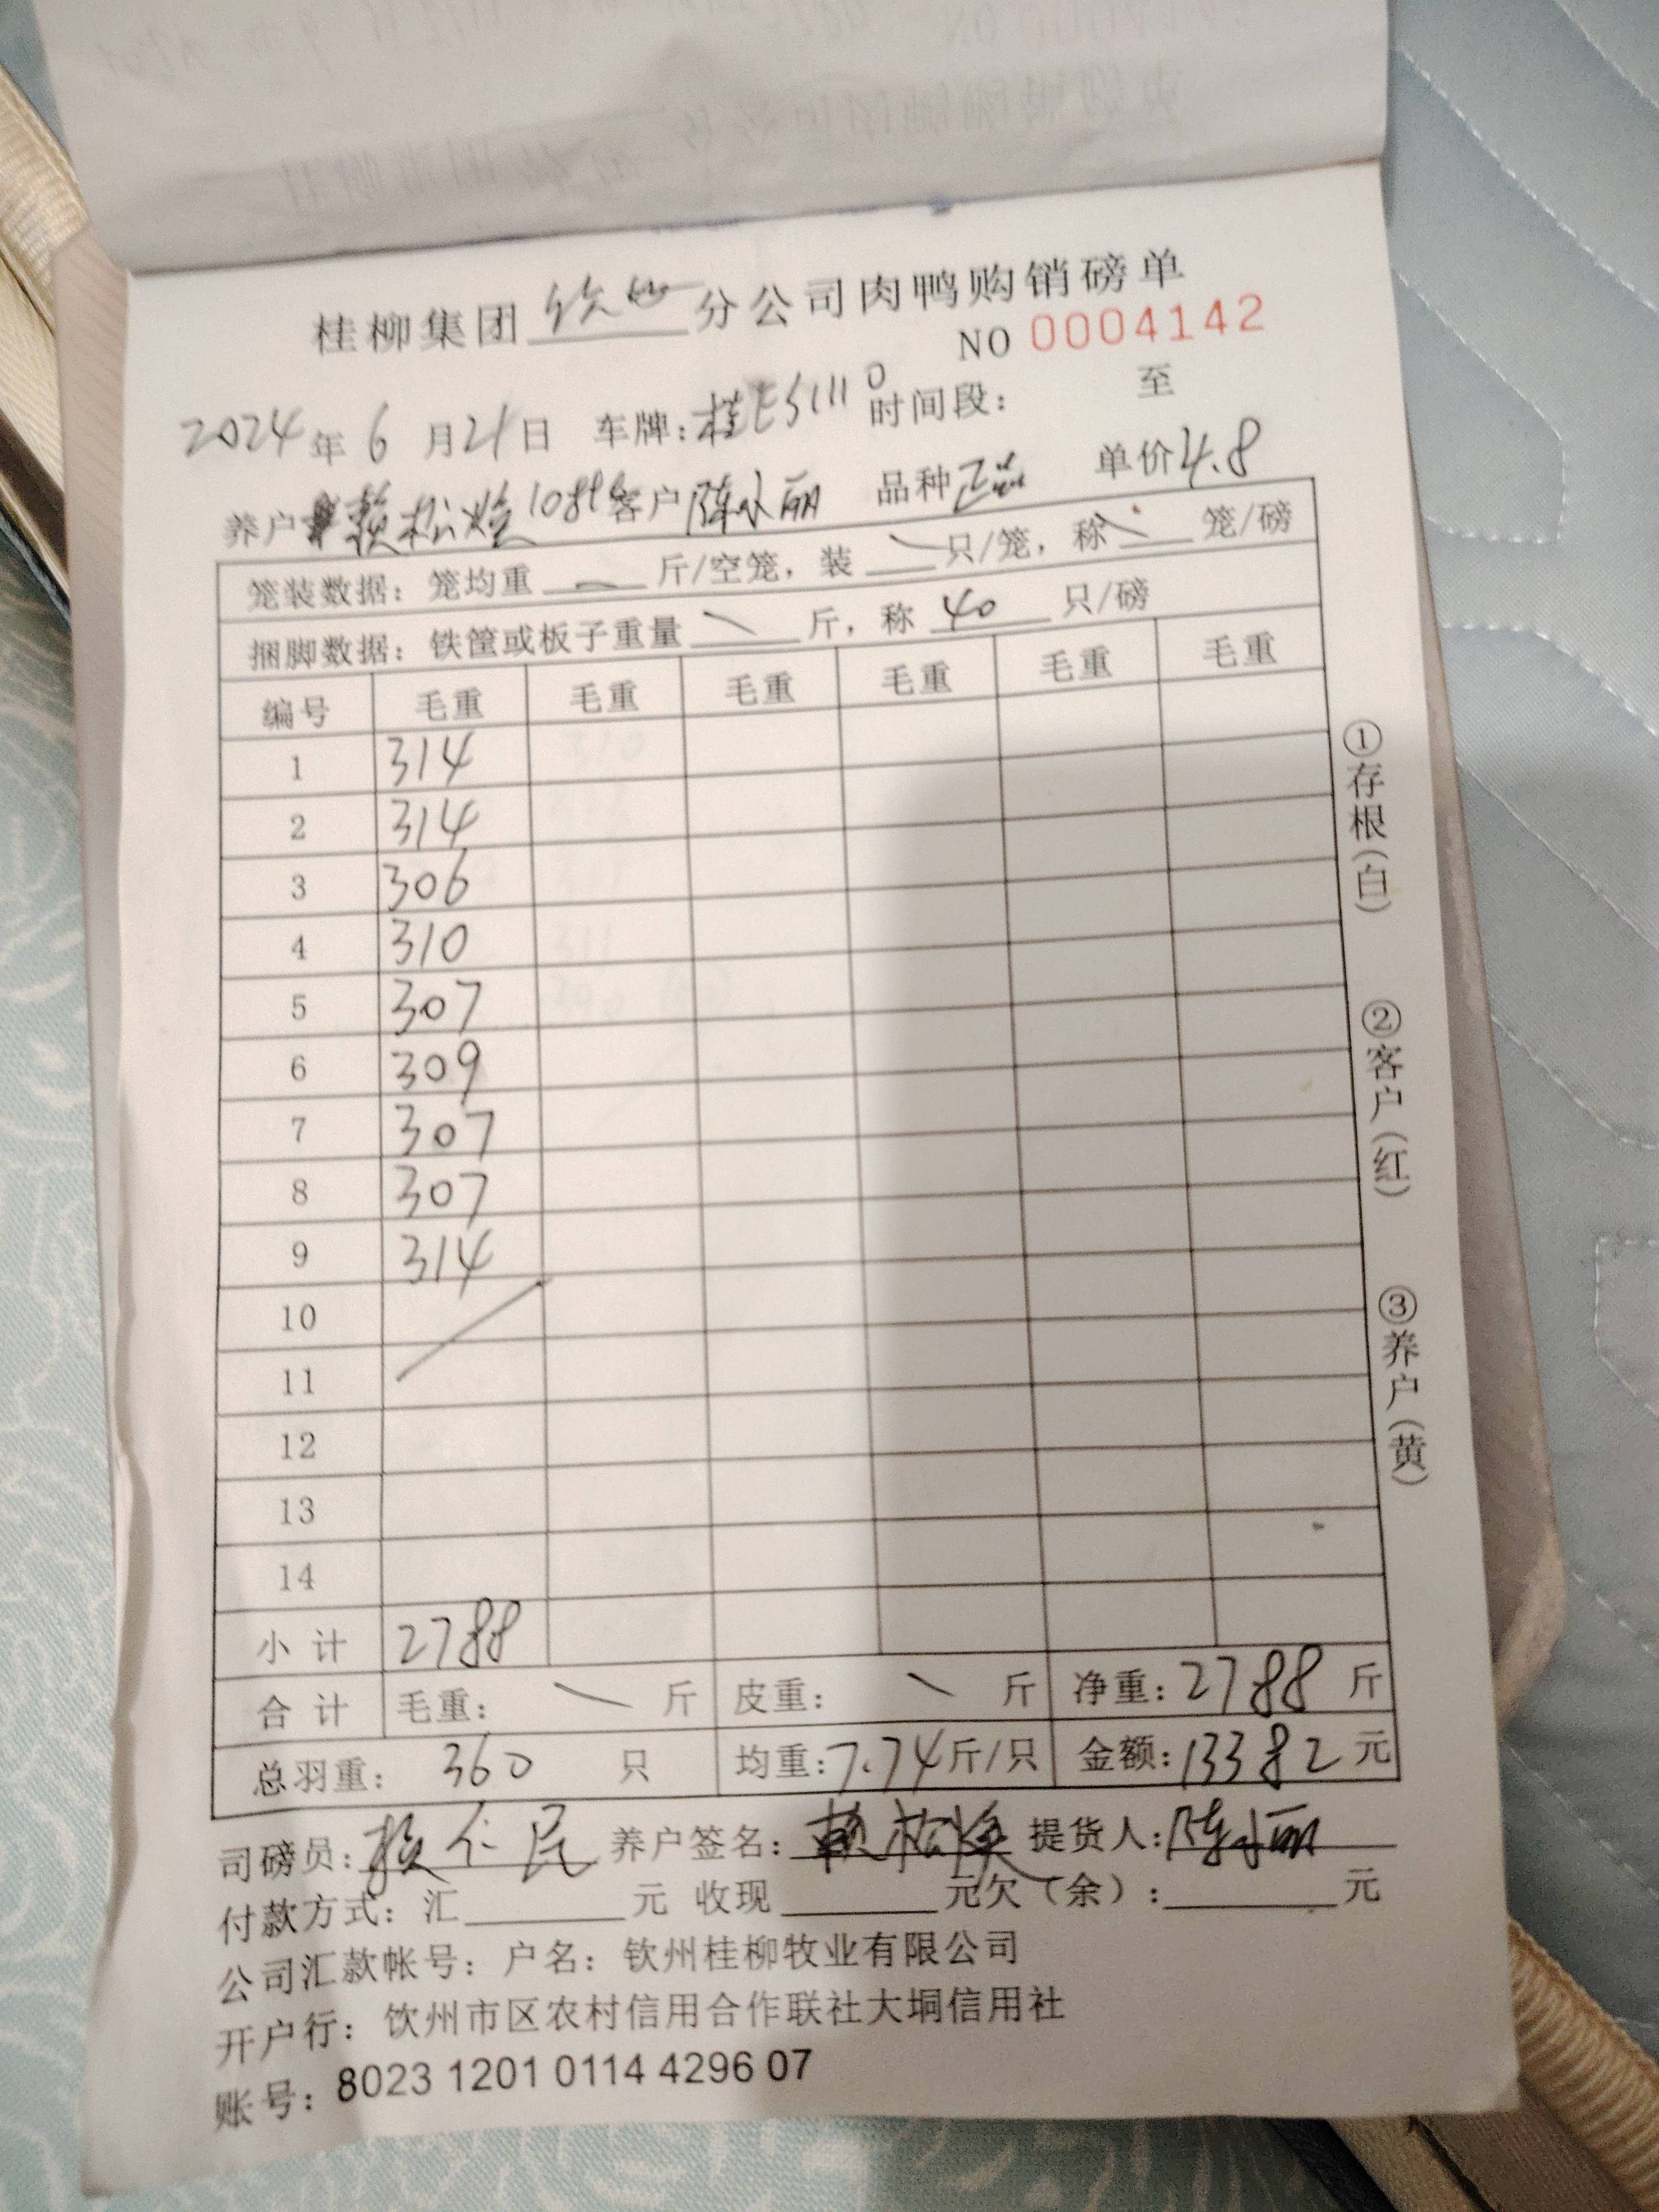 桂柳集团 钦州 分公司肉鸭购销磅单
NO 0004142
2024 年 6 月 21 日 车牌: 桂E51110 时间段: 至
养户 赖松焕 108 客户 陈小丽 品种 单价 4.8
笼装数据: 笼均重 斤/空笼, 装 只/笼, 称 笼/磅
捆脚数据: 铁筐或板子重量 斤, 称 40 只/磅
编号 毛重 毛重 毛重 毛重 毛重 毛重
1 314
2 314
3 306
4 310
5 307
6 309
7 307
8 307
9 314
10
11
12
13
14
小计 2788
合计 毛重: 斤 皮重: 斤 净重: 2788 斤
总羽重: 360 只 均重: 7.74 斤/只 金额: 13382 元
司磅员: 民 养户签名: 赖松焕 提货人: 陈小丽
付款方式: 汇 元 收现 元欠(余): 元
公司汇款帐号: 户名: 钦州桂柳牧业有限公司
开户行: 钦州市区农村信用合作联社大垌信用社
账号: 8023 1201 0114 4296 07
①存根(白)
②客户(红)
③养户(黄)